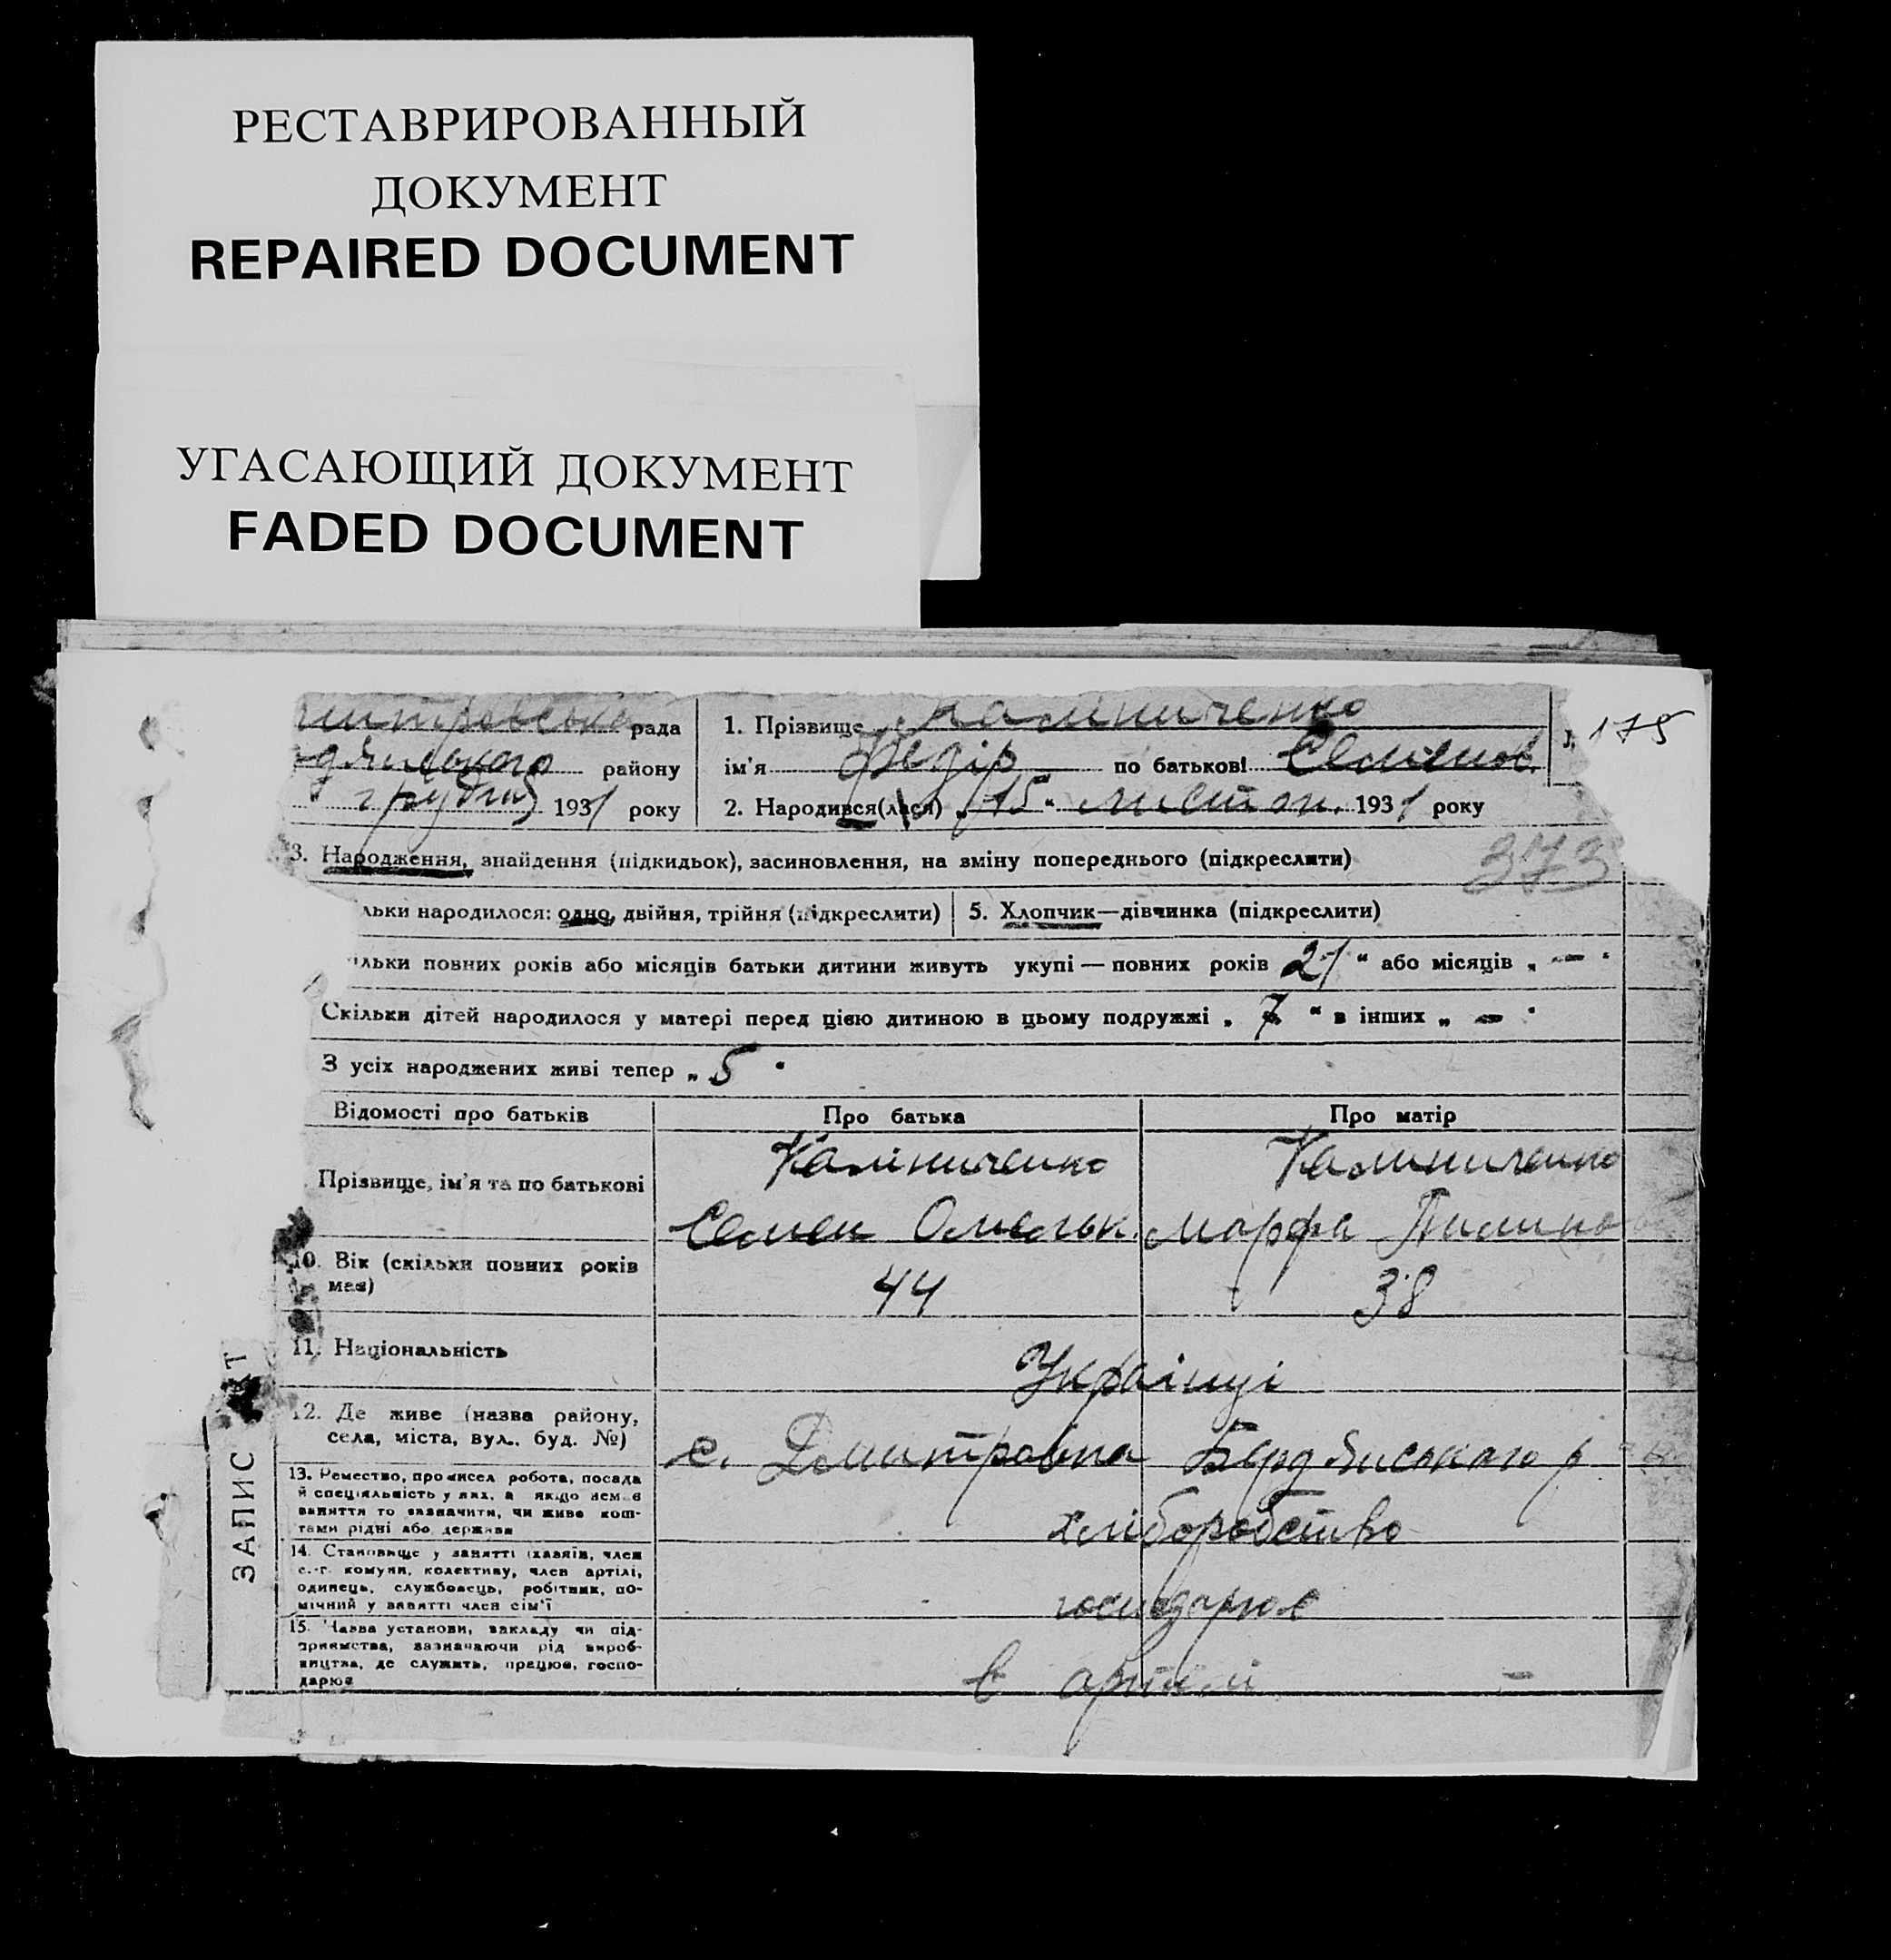 РЕСТАВРИРОВАННЫЙ
ДОКУМЕНТ
REPAIRED DOCUMENT
УГАСАЮЩИЙ ДОКУМЕНТ
FADED DOCUMENT
митровська рада
дянського району
грудня 1931 року
1. Прізвище Калиниченко
ім'я Федір по батькові Семенов.
2. Народився(лася) „15“ листоп. 1931 року
175
373
3. Народження, знайдення (підкидьок), засиновлення, на зміну попереднього (підкреслити)
льки народилося: одно, двійня, трійня (підкреслити)
5. Хлопчик—дівчинка (підкреслити)
ільки повних років або місяців батьки дитини живуть укупі — повних років 21 “ або місяців „ — “
Скільки дітей народилося у матері перед цією дитиною в цьому подружжі „ 7 “ в інших „ — “
З усіх народжених живі тепер „ 5 “
Відомості про батьків
Про батька
Про матір
Прізвище, ім'я та по батькові
Калініченко
Семен Омельк.
Калиниченко
Марфа
10. Вік (скільки повних років
має)
44
38
11. Національність
Українці
12. Де живе (назва району,
села, міста, вул., буд. №)
с. Дмитровка Бердянського р
13. Ремество, промисел робота, посада
й спеціяльність у них, а якщо немає
заняття то зазначити, чи живе кош-
тами рідні або держави
хліборобство
14. Становище у занятті (хазяїн, член
с.-г. комуни, колективу, член артілі,
одинець, службовець, робітник, по-
мічний у занятті член сім'ї
господарює
15. Назва установи, закладу чи під-
приємства, зазначаючи рід вироб-
ництва, де служить, працює, госпо-
дарює
в артілі —
ЗАПИС